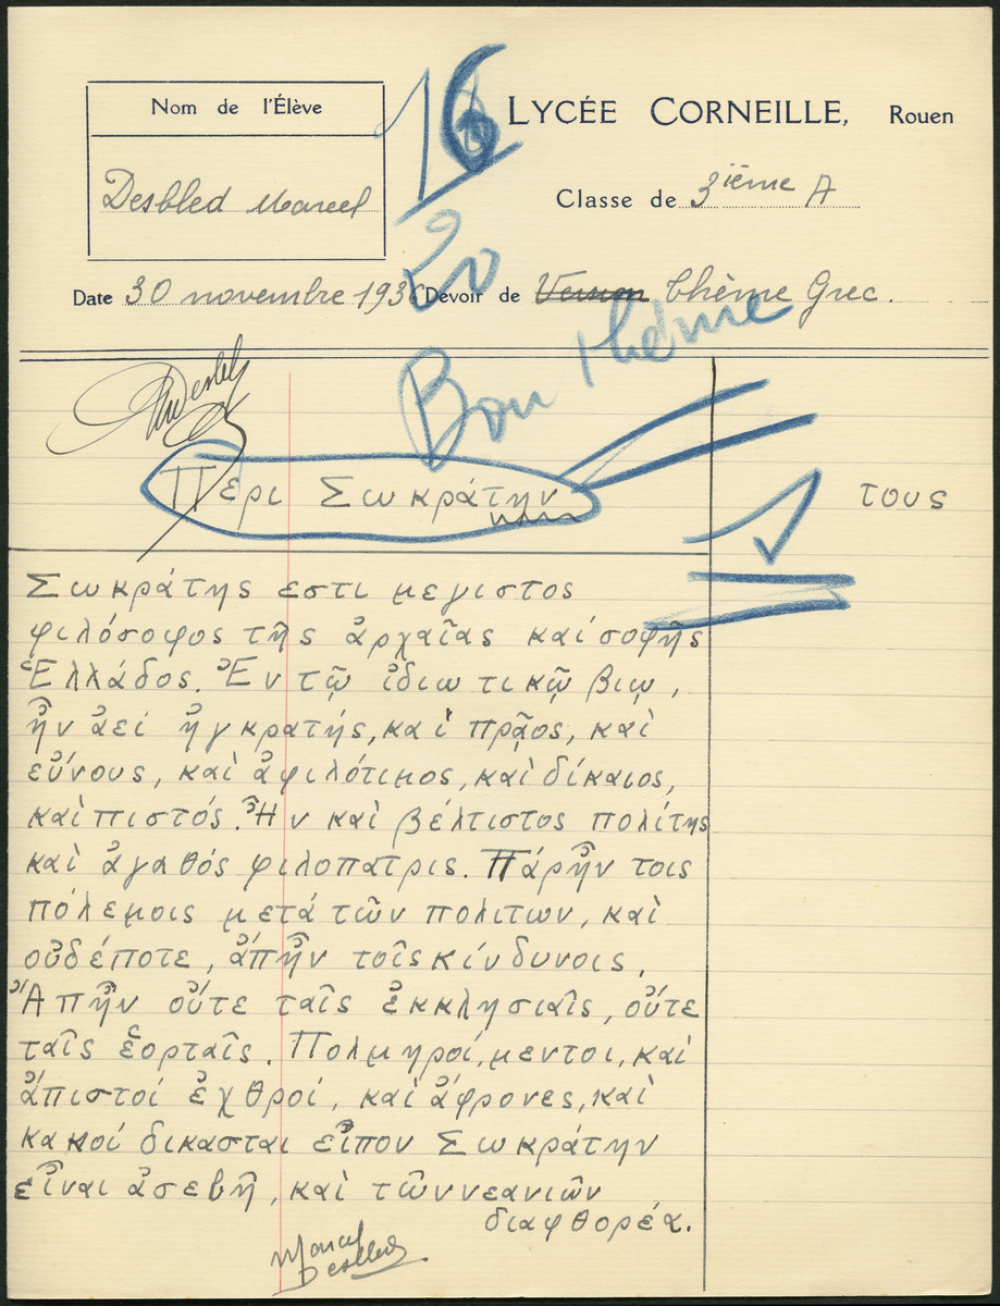 Nom de l'Élève
Desbled Marcel
16
20
LYCÉE CORNEILLE, Rouen
Classe de 3ième A
Date 30 novembre 1936 Devoir de Version thème Grec.
Bon thème
Περι Σωκράτην
τους
1
Σωκράτης εστι μεγιστος
φιλόσοφος τῆς ἀρχαῖας καί σοφῆς
Ἑλλάδος. Ἐν τῷ ἰδιωτικῷ βιῳ,
ἦν ἀεί ἠγκρατής, καὶ πρᾷος, καὶ
εὔνους, καὶ ἀφιλότιμος, καὶ δίκαιος,
καὶ πιστός. Ἦν καὶ βέλτιστος πολίτης
καὶ ἀγαθός φιλοπατρις. Πάρῆν τοις
πόλεμοις μετά τῶν πολιτων, καὶ
οὐδέποτε, ἄπῆν τοῖς κίνδυνοις.
Ἄπῆν οὔτε ταῖς ἐκκλησιαῖς, οὔτε
ταῖς ἑορταῖς. Πολμηροί, μεντοι, καὶ
ἄπιστοί ἐχθροί, καὶ ἄφρονες, καὶ
κακοί δικασται εἶπον Σωκράτην
εἶναι ἀσεβῆ, καὶ τῶν νεανιῶν
διαφθορέα.
Marcel
Desbled